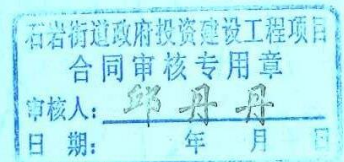 石岩街道政府投资建设工程项目
合同审核专用章
审核人：邱丹丹
日期： 年 月 日